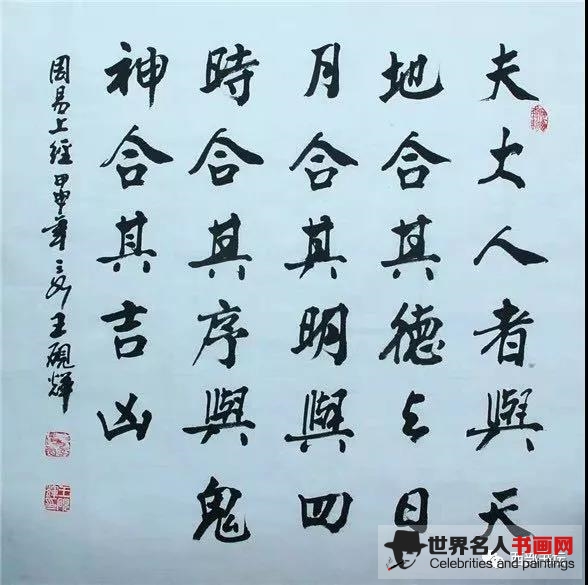 夫大人者與天
地合其德与日
月合其明與四
時合其序與鬼
神合其吉凶
周易上經甲申年 王硯輝
世界名人书画网
Celebrities and paintings